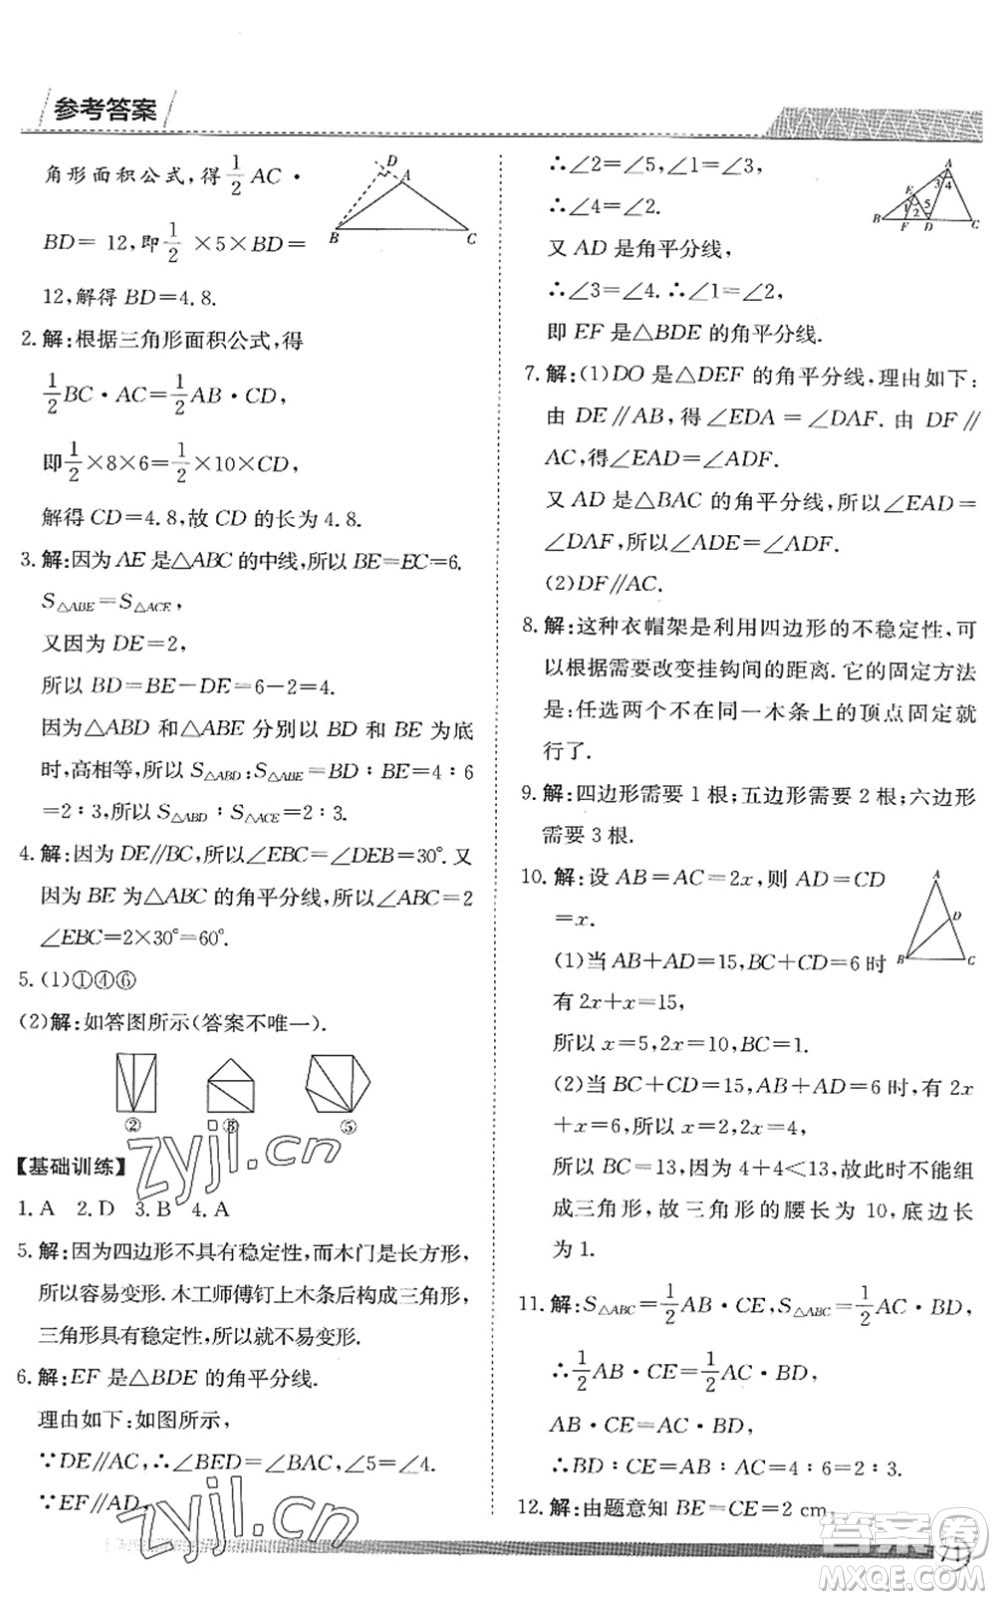 参考答案
角形面积公式,得1/2AC·
BD=12,即1/2×5×BD=
12,解得BD=4.8.
2.解:根据三角形面积公式,得
1/2BC·AC=1/2AB·CD,
即1/2×8×6=1/2×10×CD,
解得CD=4.8,故CD的长为4.8.
3.解:因为AE是△ABC的中线,所以BE=EC=6.
S△ABE=S△ACE,
又因为DE=2,
所以BD=BE-DE=6-2=4.
因为△ABD和△ABE分别以BD和BE为底
时,高相等,所以S△ABD:S△ABE=BD:BE=4:6
=2:3,所以S△ABD:S△ACE=2:3.
4.解:因为DE//BC,所以∠EBC=∠DEB=30°.又
因为BE为△ABC的角平分线,所以∠ABC=2
∠EBC=2×30°=60°.
5.(1)①④⑥
(2)解:如答图所示(答案不唯一).
② ③ ⑤
【基础训练】
1.A 2.D 3.B 4.A
5.解:因为四边形不具有稳定性,而木门是长方形,
所以容易变形.木工师傅钉上木条后构成三角形,
三角形具有稳定性,所以就不易变形.
6.解:EF是△BDE的角平分线.
理由如下:如图所示,
∵DE//AC,∴∠BED=∠BAC,∠5=∠4.
∵EF//AD,
∴∠2=∠5,∠1=∠3,
∴∠4=∠2.
又AD是角平分线,
∴∠3=∠4.∴∠1=∠2,
即EF是△BDE的角平分线.
7.解:(1)DO是△DEF的角平分线,理由如下:
由DE//AB,得∠EDA=∠DAF.由DF//
AC,得∠EAD=∠ADF.
又AD是△BAC的角平分线,所以∠EAD=
∠DAF,所以∠EDA=∠ADF.
(2)DF//AC.
8.解:这种衣帽架是利用四边形的不稳定性,可
以根据需要改变挂钩间的距离.它的固定方法
是:任选两个不在同一木条上的顶点固定就
行了.
9.解:四边形需要1根;五边形需要2根;六边形
需要3根.
10.解:设AB=AC=2x,则AD=CD
=x.
(1)当AB+AD=15,BC+CD=6时
有2x+x=15,
所以x=5,2x=10,BC=1.
(2)当BC+CD=15,AB+AD=6时,有2x
+x=6,所以x=2,2x=4,
所以BC=13,因为4+4<13,所以不能组
成三角形,故三角形的腰长为10,底边长
为1.
11.解:S△ABC=1/2AB·CE,S△ABC=1/2AC·BD,
∴1/2AB·CE=1/2AC·BD,
AB·CE=AC·BD,
∴BD:CE=AB:AC=4:6=2:3.
12.解:由题意知BE=CE=2 cm,
zyjl.cn
zyjl.cn
答案圈
MXQE.COM
71